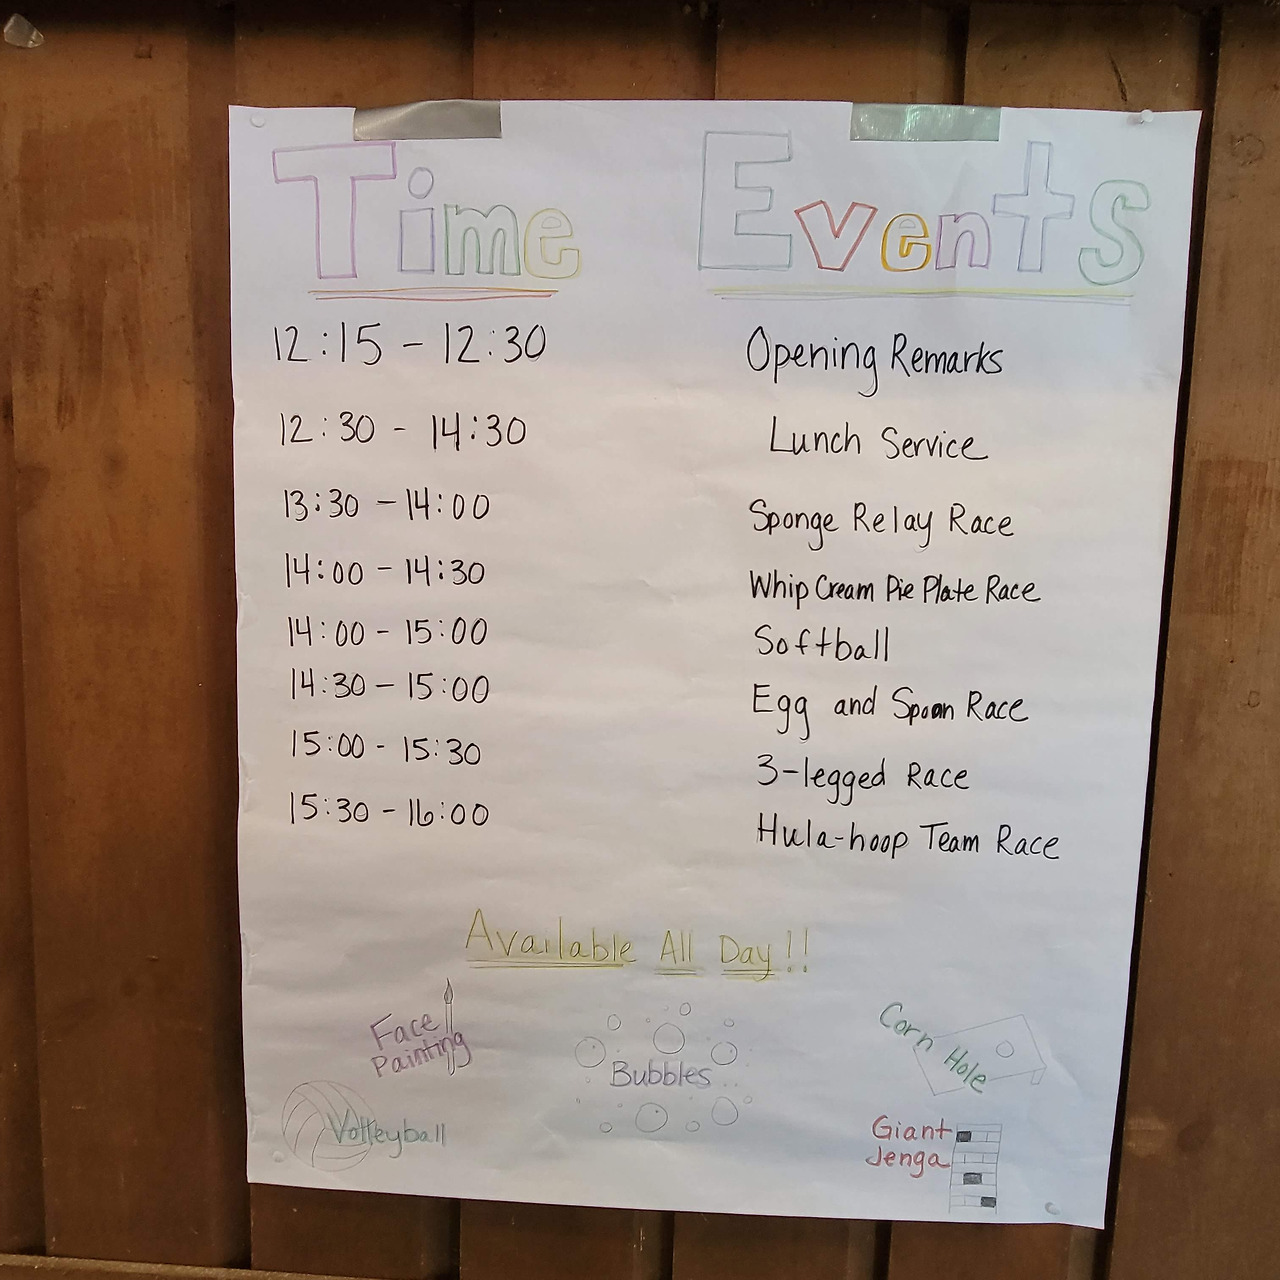 Time Events
12:15 - 12:30 Opening Remarks
12:30 - 14:30 Lunch Service
13:30 - 14:00 Sponge Relay Race
14:00 - 14:30 Whip Cream Pie Plate Race
14:00 - 15:00 Softball
14:30 - 15:00 Egg and Spoon Race
15:00 - 15:30 3-legged Race
15:30 - 16:00 Hula-hoop Team Race
Available All Day!!
Face
Painting
Bubbles
Corn Hole
Volleyball
Giant
Jenga